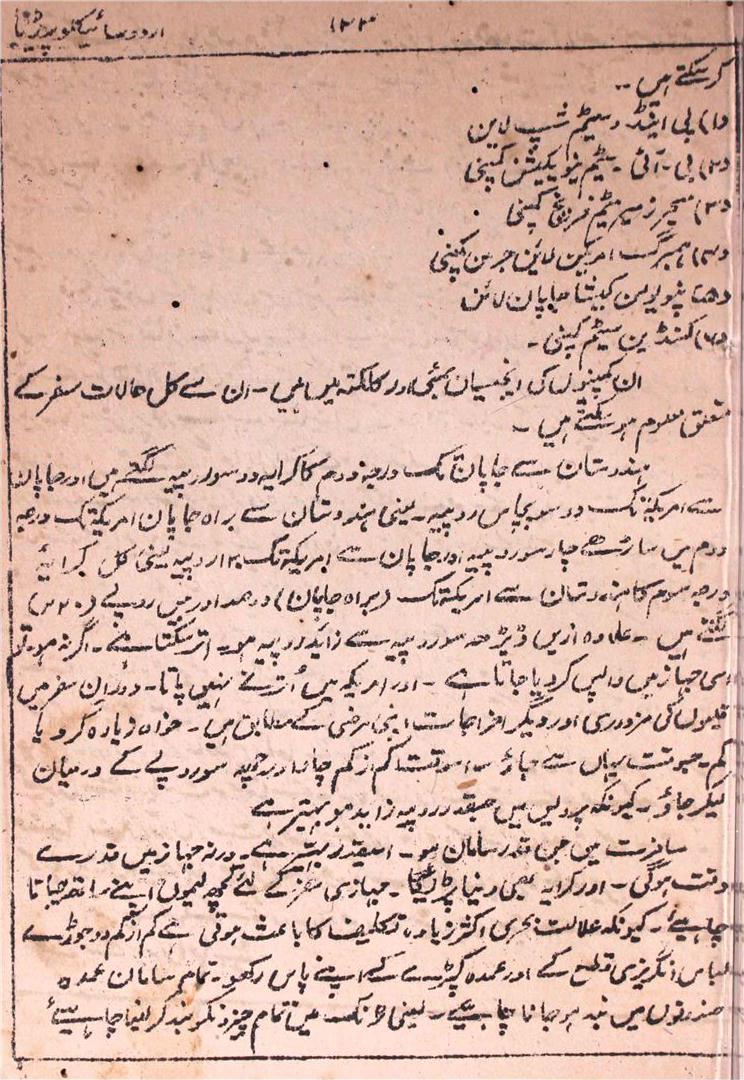 ۱۳۳ اردو سائیکلوپیڈیا
کر سکتے ہیں ۔۔
(۱) پی اینڈ و سٹیم شپ لاین
(۲) بی۔ آئی ۔ سٹیم نیویگیشن کمپنی
(۳) میجرز میر سٹیم فرنچ کمپنی
(۴) ہمبرگ امریکن لائین جرمن کمپنی
(۵) نپو یوسن کیشا جاپان لائن
(۶) کنڈین سٹیم کمپنی ۔
ان کمپنیوں کی ایجنسیاں بمبئی اور کلکتہ میں ہیں ۔ ان سے کل حالات سفر کے
متعلق معلوم ہو سکتے ہیں ۔
ہندوستان سے جاپان تک درجہ دوم کا کرایہ دو سو روپیہ لگتے ہیں اور جاپان
سے امریکہ تک دو سو پچاس روپیہ ۔ یعنی ہندوستان سے براہ جاپان امریکہ تک درجہ
دوم میں ساڑھے چار سو روپیہ اور جاپان سے امریکہ تک ۱۲۰ روپیہ یعنی کل کرایہ
درجہ سوم کا ہندوستان سے امریکہ تک (براہ جاپان) دو صد اور بیس روپے (۲۲۰)
لگتے ہیں ۔ علاوہ ازیں ڈیڑھ سو روپیہ سے زاید روپیہ ہو ۔ اتر سکتا ہے ۔ اگر نہ ہو تو
اسی جہاز میں واپس کر دیا جاتا ہے ۔ اور امریکہ میں اُترنے نہیں پاتا ۔ دوران سفر میں
قلیوں کی مزدوری اور دیگر اخراجات اپنی مرضی کے مطابق ہیں ۔ خواہ زیادہ کرو یا
کم ۔ جسوقت یہاں سے جاؤ ۔ اسوقت کم از کم چار اور چھ سو روپے کے درمیان
لیکر جاؤ ۔ کیونکہ پردیس میں جسقدر روپیہ زاید ہو بہتر ہے
مسافرت میں جس قدر سامان ہو ۔ اسیقدر بہتر ہے ۔ ورنہ جہاز میں قدرے
دقت ہوگی ۔ اور کرایہ بھی دینا پڑیگا ۔ جہازی سفر کے لئے کچھ لیموں اپنے ساتھ جانا
چاہیئے ۔ کیونکہ علالت بحری اکثر زیادہ تکلیف کا باعث ہوتی ہے کم از کم دو جوڑے
لباس انگریزی قطع کے اور عمدہ کپڑے کے اپنے پاس رکھو ۔ تمام سامان عمدہ
صندوقوں میں بند ہو جانا چاہیئے ۔ یعنی ٹرنک میں تمام چیزونکو بند کر لینا چاہیئے